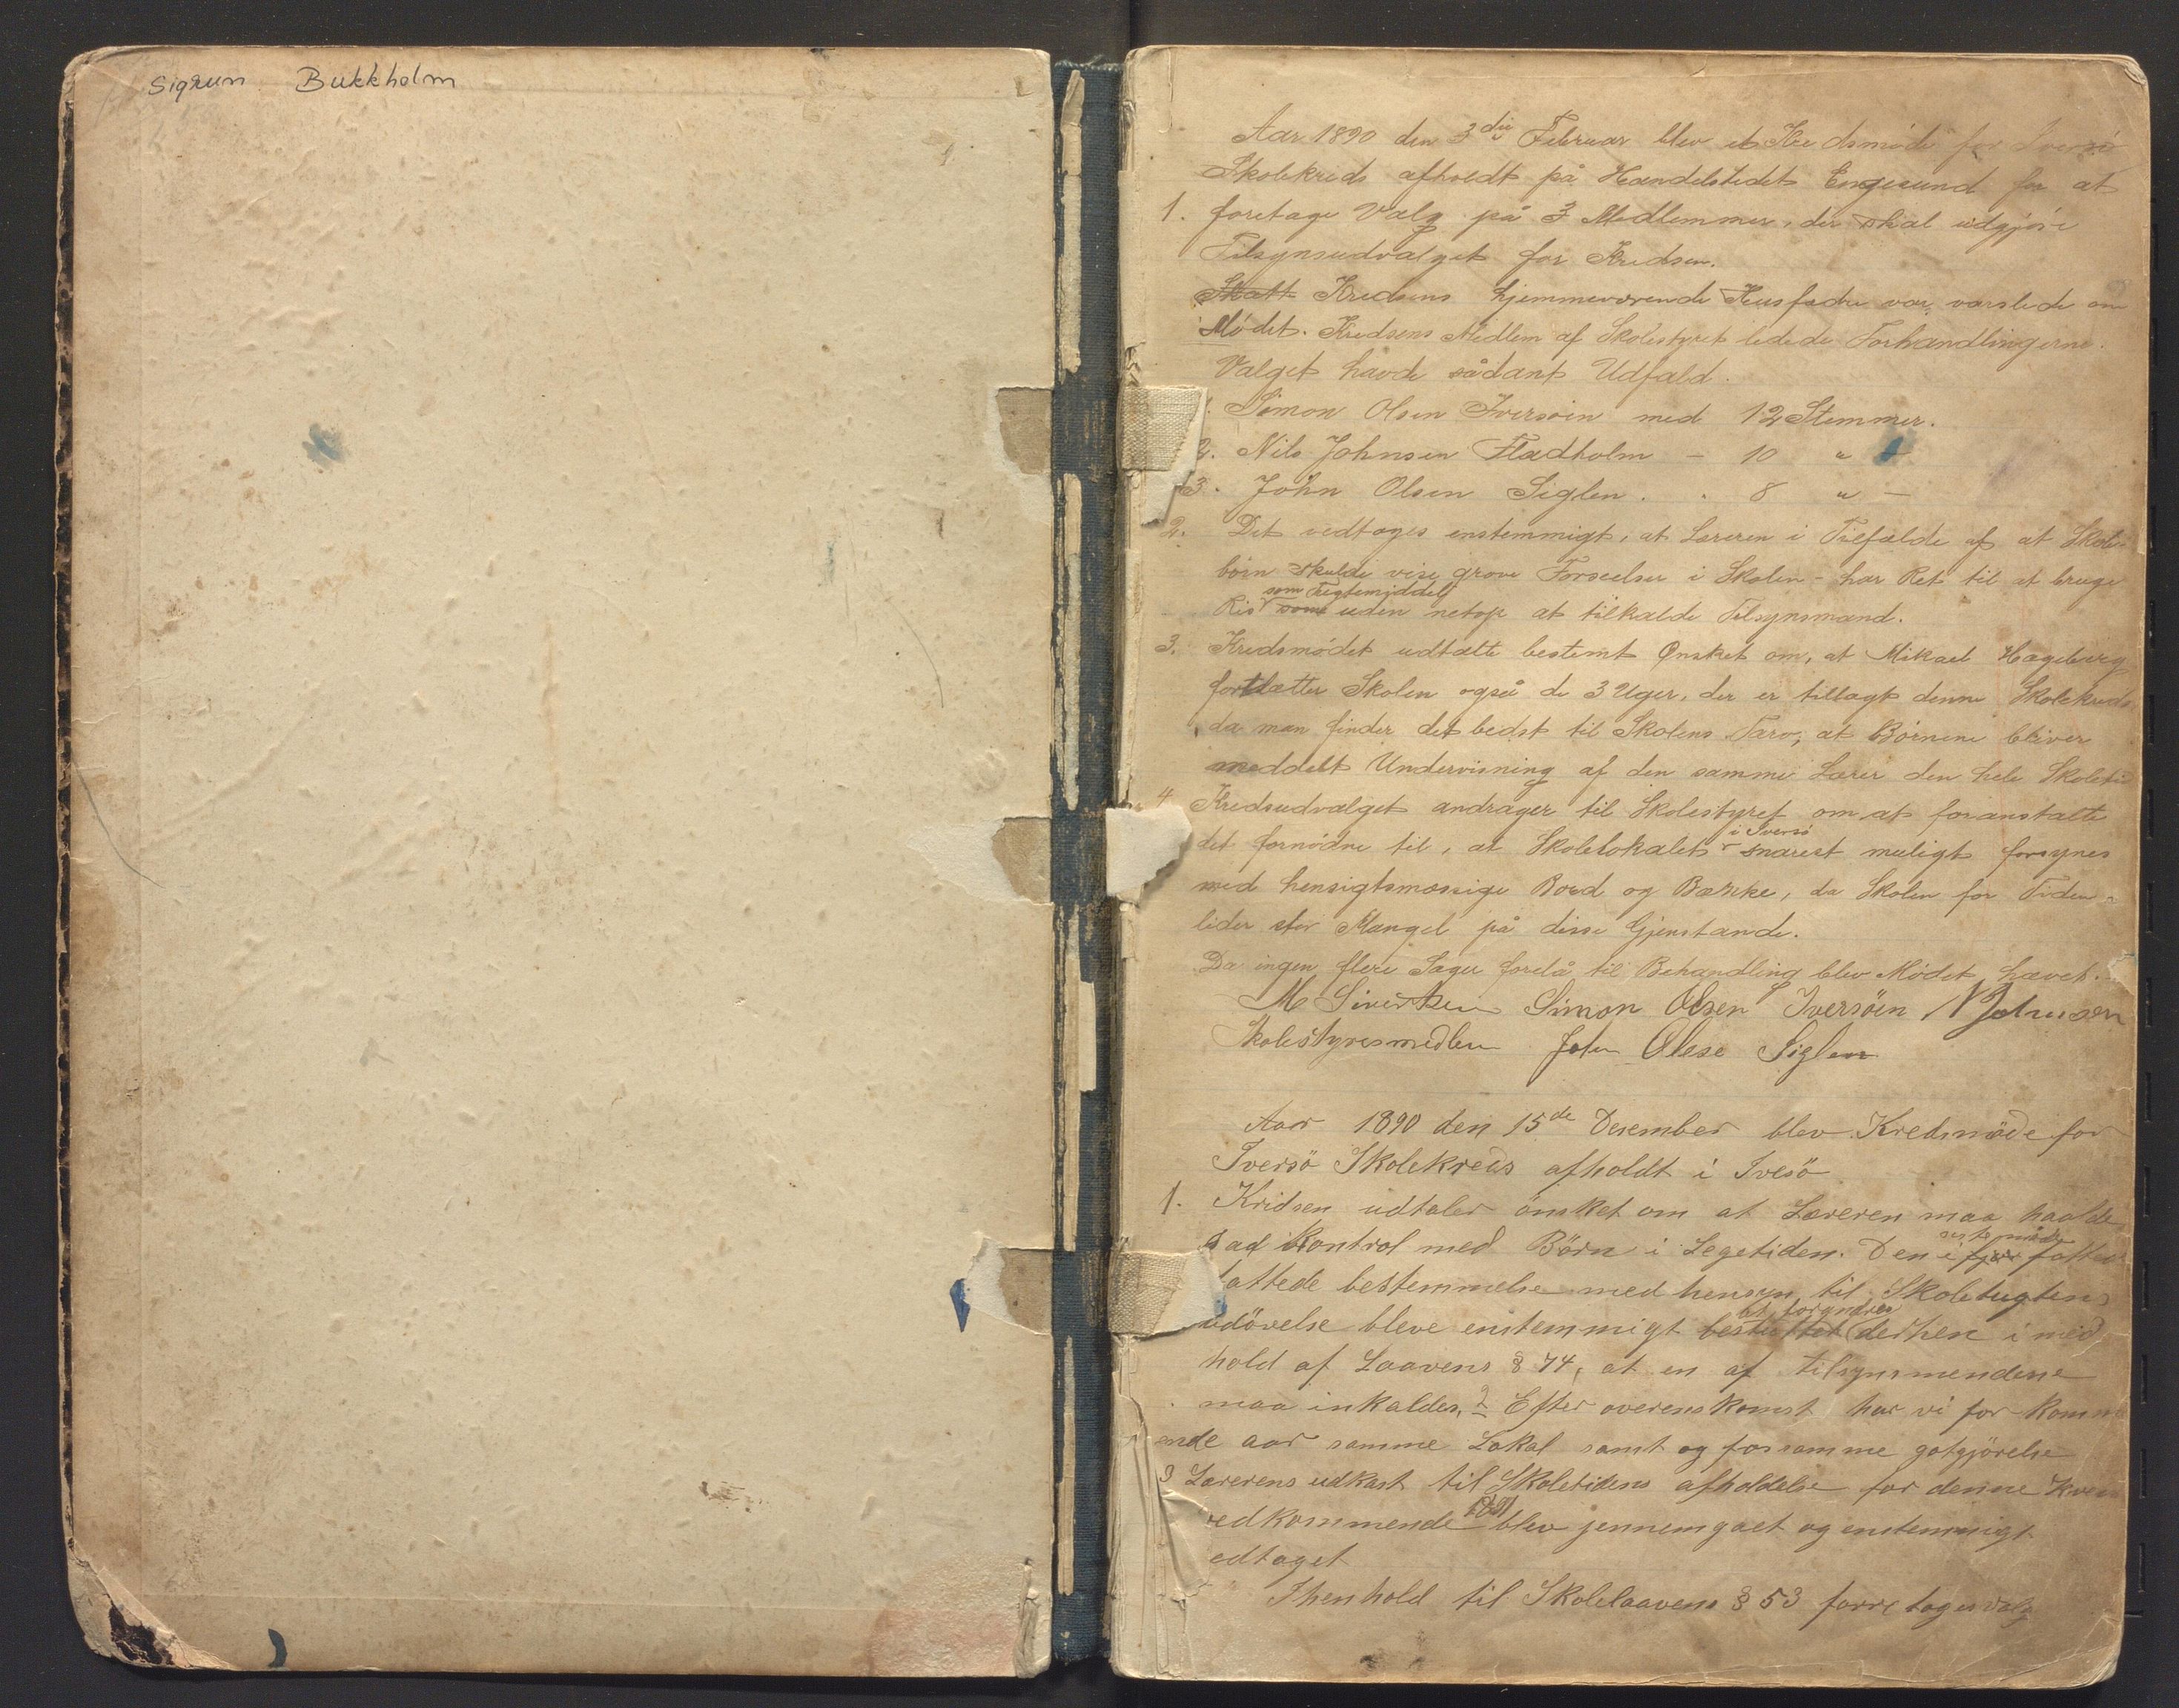 Sigrun Bukkholm
Aar 1890 den 3die Februar blev et Kredsmöde for Iversö
Skolekreds afholdt på Handelstedet Engesund for at
1. foretage Valg på 3 Medlemmer, der skal udgjöre
Tilsynsudvalget for Kredsen.
Kredsens hjemmeværende Husfædre var varslede om
Mödet. Kredsens Medlem af Skolestyret ledede Forhandlingerne.
Valget havde sådant Udfald.
1. Simon Olsen Iversöen med 12 Stemmer.
2. Nils Johnsen Fladholm - 10 " -
3. John Olsen Siglen. " 8 " -
2. Det vedtoges enstemmigt, at Læreren i Tilfælde af at Skole-
börn skulde vise grove Forseelser i Skolen - har Ret til at bruge
som Tugtemiddel
Ris som uden netop at tilkalde Tilsynsmand.
3. Kredsmödet udtalte bestemt Önsket om, at Mikael Hageberg
fortsætter Skolen også de 3 Uger, der er tillagt denne Skolekreds
da man finder det bedst til Skolens Tarv, at Börnene bliver
meddelt Undervisning af den samme Lærer den hele Skoletid
4 Kredsudvalget andrager til Skolestyret om at foranstalte
i Iversö
det fornödne til, at Skolelokalet snarest muligt forsynes
med hensigtsmæssige Bord og Bænke, da Skolen for Tiden
lider stor Mangel på disse Gjenstande.
Da ingen flere Sager forelå til Behandling blev Mödet hævet.
M Sivertsen Simon Olsen Iversöen N Johnsen
Skolestyresmedlem John Olese Siglen
Aar 1890 den 15de Desember blev Kredsmöde for
Iversö Skolekreds afholdt i Ivesö
1. Kridsen udtaler önsket om at Læreren maa haolde
Kontrol med Börn i Legetiden. Den i fjor
fattede bestemmelse med hensyn til Skoletugtens
udövelse bleve enstemmigt derhen i med
hold af Laavens § 74, at en af tilsynsmendene
maa inkaldes, 2 Efter overenskomst har vi for komm
ende aar samme Lokal samt og for samme gotgjörelse
3 Lærerens udkast til Skoletidens afholdelse for denne Kreds
vedkommende 1891 blev jennemgaet og enstemmigt
vedtaget
I henhold til Skolelaavens § 53 forretoges valg